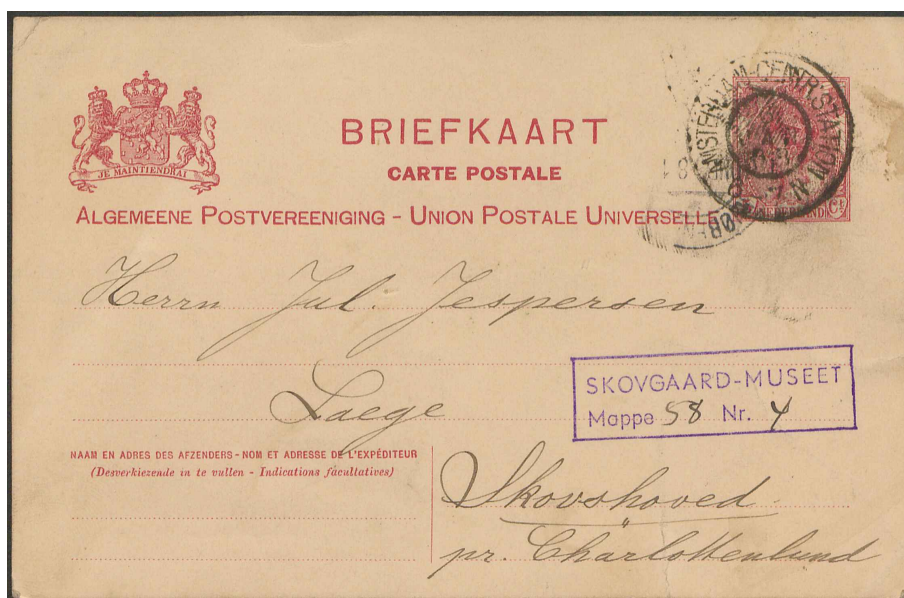 BRIEFKAART
CARTE POSTALE
ALGEMEENE POSTVEREENIGING - UNION POSTALE UNIVERSELLE
JE MAINTIENDRAI
AMSTERDAM-CENTR:STATION
NEDERLAND Ct
Herrn Jul. Jespersen
Laege
SKOVGAARD-MUSEET
Mappe 58 Nr. 4
NAAM EN ADRES DES AFZENDERS - NOM ET ADRESSE DE L'EXPÉDITEUR
(Desverkiezende in te vullen - Indications facultatives)
Skovshoved
pr. Charlottenlund